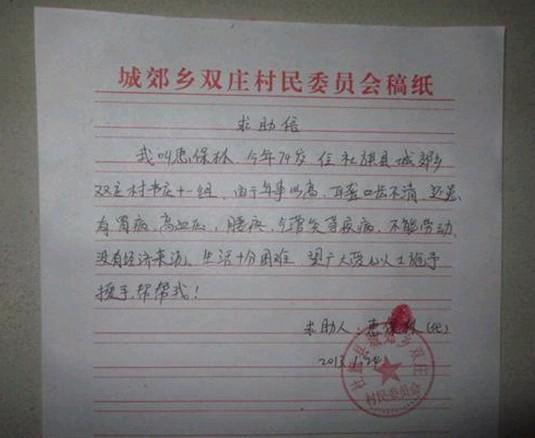 城郊乡双庄村民委员会稿纸
求助信
我叫惠保林,今年74岁,住社旗县城郊乡
双庄村书庄十一组,由于年事以高,耳聋口齿不清,还患
有胃病,高血压,腰疼,气管炎等疾病,不能劳动,
没有经济来源,生活十分困难,望广大爱心人士施予
援手,帮帮我!
求助人:惠保林
2013.1.24
社旗县城郊乡双庄
村民委员会